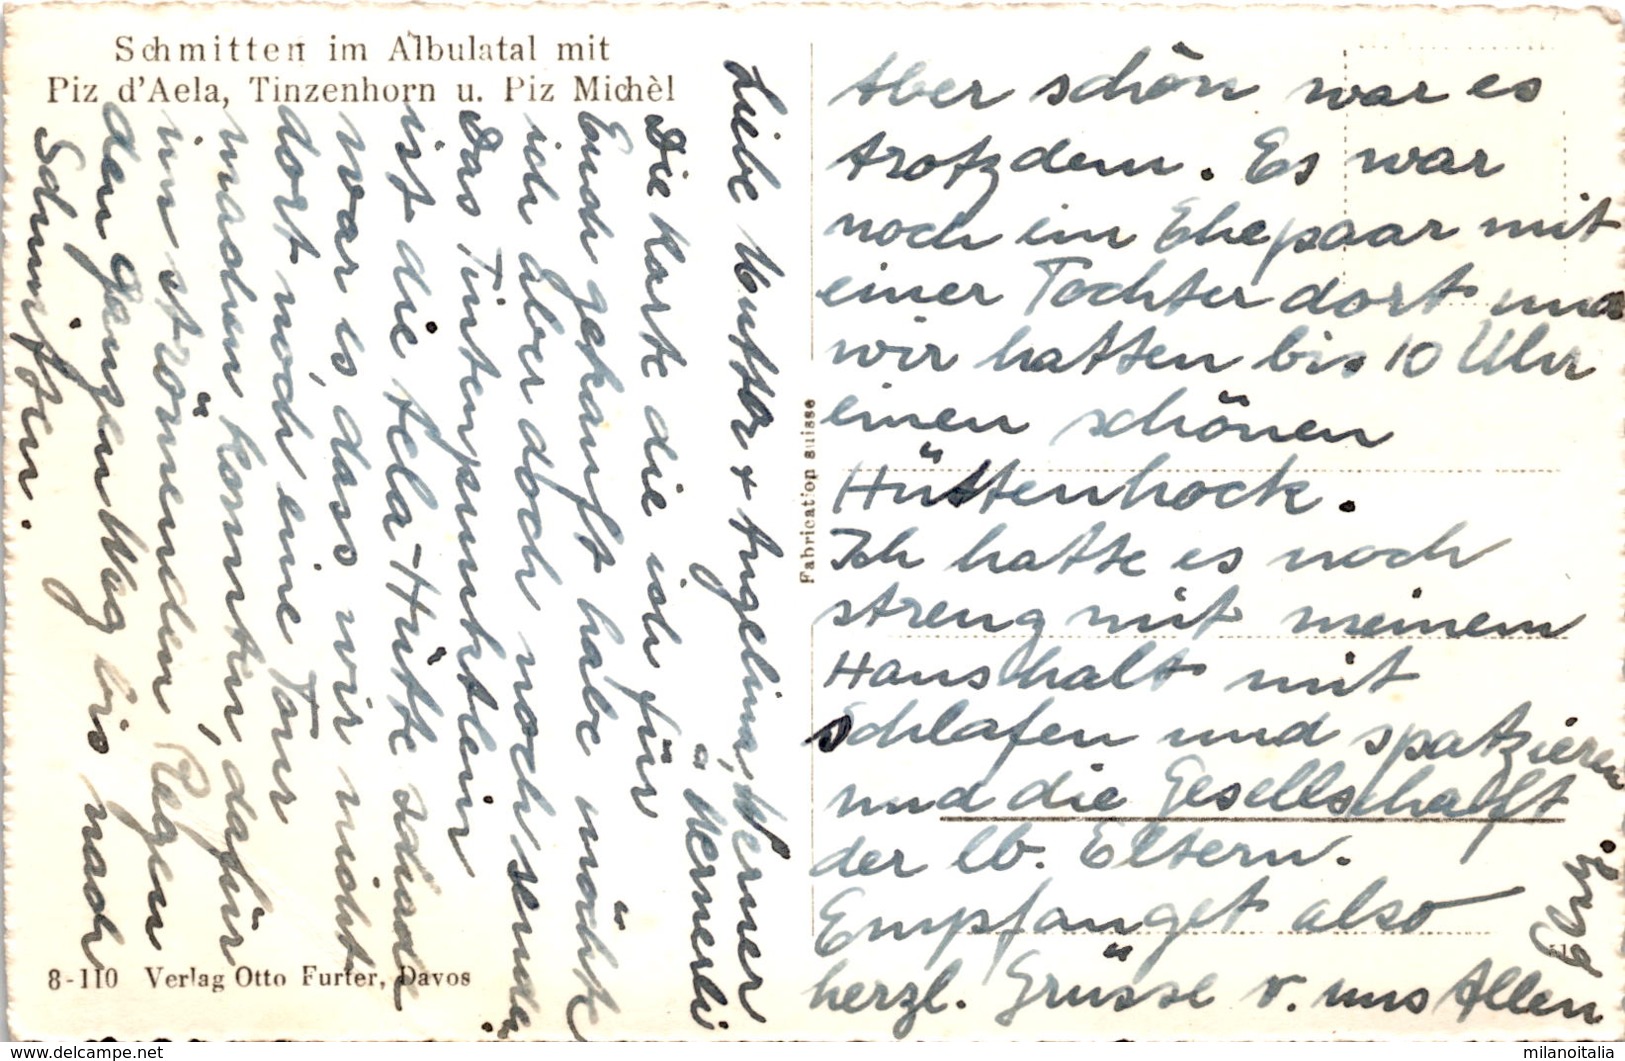 Schmitten im Albulatal mit
Piz d'Aela, Tinzenhorn u. Piz Michèl
Liebe Mutter + Angelina, Werner
u. Wernerli
Die Karte die ich für
Euch gekauft habe möchte
ich aber doch noch senden.
Das Tintenpünktlein
ist die Aela-Hütte schade
war es dass wir nicht
dort noch eine Tour
machen konnten, dafür
im strömenden Regen
den ganzen Weg bis nach
Schmitten.
8-110 Verlag Otto Furter, Davos
Fabrication suisse
Aber schön war es
trotzdem. Es war
noch ein Ehepaar mit
einer Tochter dort und
wir hatten bis 10 Uhr
einen schönen
Hüttenhock.
Ich hatte es noch
streng mit meinem
Haushalt mit
schlafen und spatzieren
und die Gesellschafft
der lb. Eltern.
Empfanget also
herzl. Grüsse v. uns Allen
milanoitalia